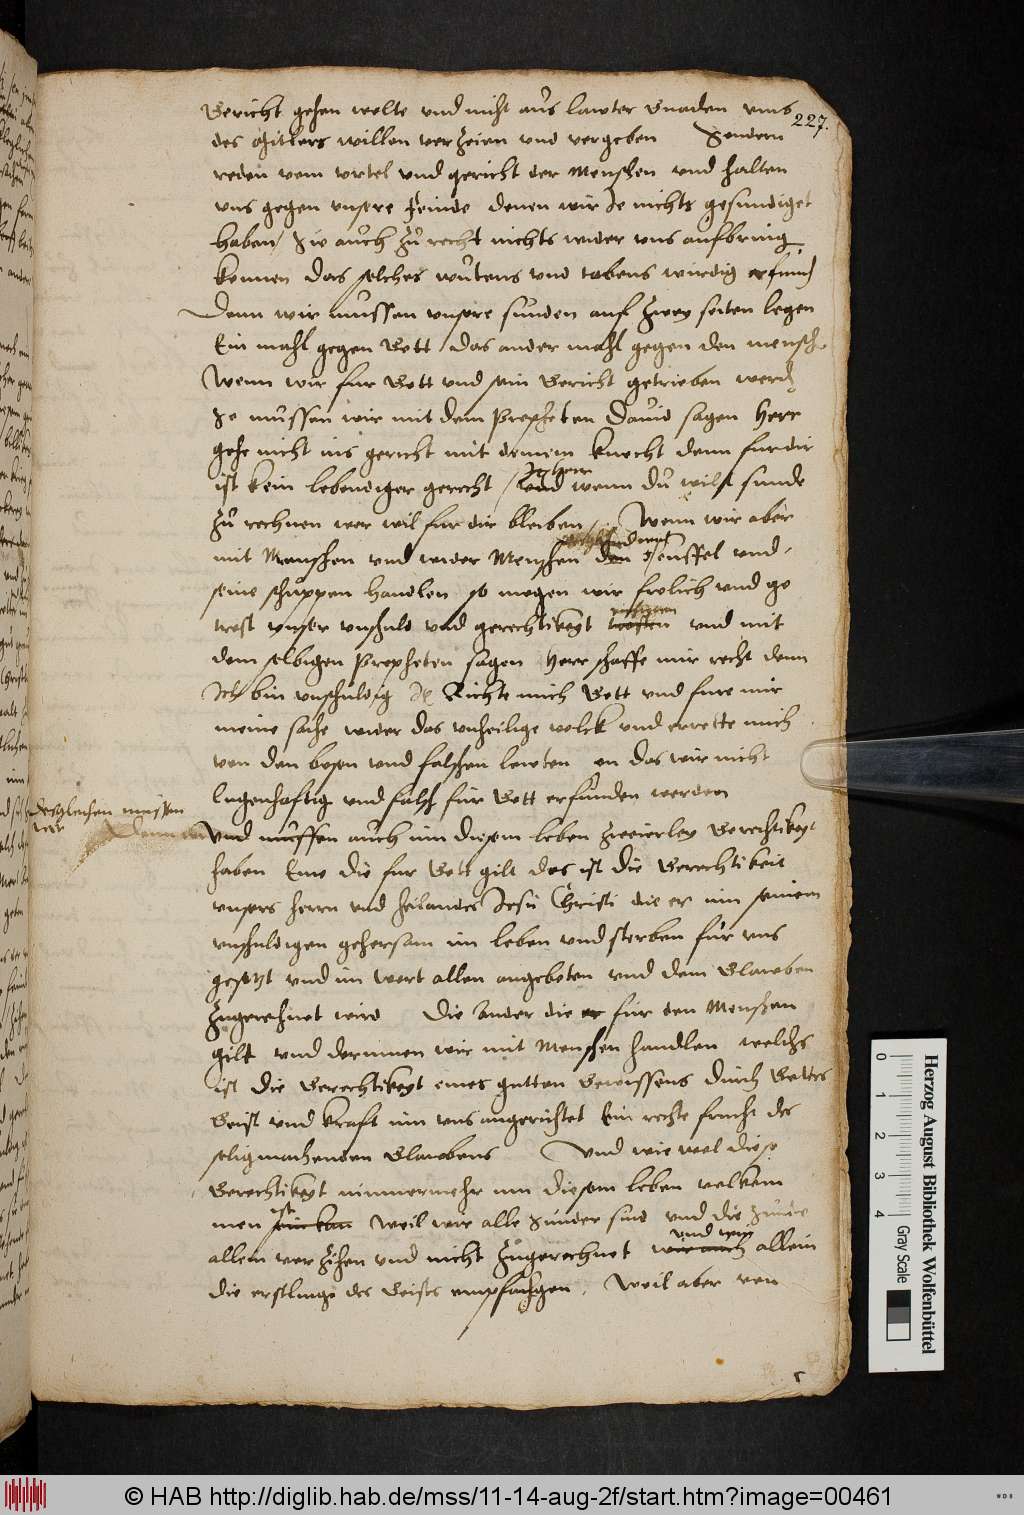 227.
Gericht gehen wolte vnd nicht aus lawter Gnaden vmb
des Mitlers willen verzeien vnd vergeben Sondern
reden vom vrtel vnd gericht der Menschen vnd halten
vns gegen vnsere feinde denen wir Je nichts gesundiget
haben / Sie auch zu recht nichts wider vns aufbring
konnen das solches wutens vnd tobens wirdig erfund
Denn wir mussen vnsere sunden auf zwey seiten legen
Ein mahl gegen Gott / das ander mahl gegen den mensch
Wenn wir fur Gott vnd sein Gericht getrieben werd
So mussen wir mit dem Propheten Dauid sagen Herr
gehe nicht ins gericht mit deinem knecht denn fur dir
ist kein lebendiger gerecht / vnd wenn du wilst sunde
zu rechnen wer wil fur dir bleiben / Wenn wir aber
mit Menschen vnd wider Menschen den Teuffel vnd
seine schuppen handlen so mogen wir frolich vnd ge
trost vnser vnschuld vnd gerechtikeyt vnd mit
dem selbigen Propheten sagen Herr schaffe mir recht denn
Ich bin vnschuldig Richte mich Gott vnd fure mir
meine sache wider das vnheilige volck vnd errette mich
von den bosen vnd falschen lewten das wir nicht
lugenhaftig vnd falsch fur Gott erfunden werden
Desgleichen mussen
wir
Denn
vnd mussen auch inn diesem leben zweierley Gerechtikeyt
haben Eine die fur Gott gilt das ist die Gerechtikeit
vnsers herrn vnd heilandes Jesu Christi die er inn seinem
vnschuldigen gehorsam im leben vnd sterben fur vns
gesetzt vnd im wort allen angeboten vnd dem Glawben
zugerechnet wird Die ander die er fur den Menschen
gilt vnd dorinnen wir mit Menschen handlen welchs
ist die Gerechtikeyt eines gutten Gewissens durch Gottes
Geist vnd kraft inn vns angerichtet Ein rechte frucht des
seligmachenden Glawbens Vnd wie wol diese
Gerechtikeyt nimmermehr inn diesem leben volkom
men ist sein kan weil wir alle Sunder sind vnd die Sunde
allein verzihen vnd nicht zugerechnet vnd wir wir auch allein
die erstlinge des Geistes empfahgen. Weil aber von
Herzog August Bibliothek Wolfenbüttel
0 1 2 3 4
Gray Scale
© HAB http://diglib.hab.de/mss/11-14-aug-2f/start.htm?image=00461